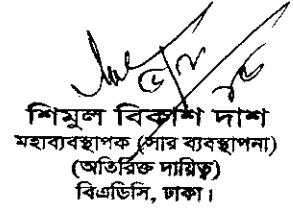 শিমুল বিকাশ দাশ
মহাব্যবস্থাপক (সার ব্যবস্থাপনা)
(অতিরিক্ত দায়িত্ব)
বিএডিসি, ঢাকা।